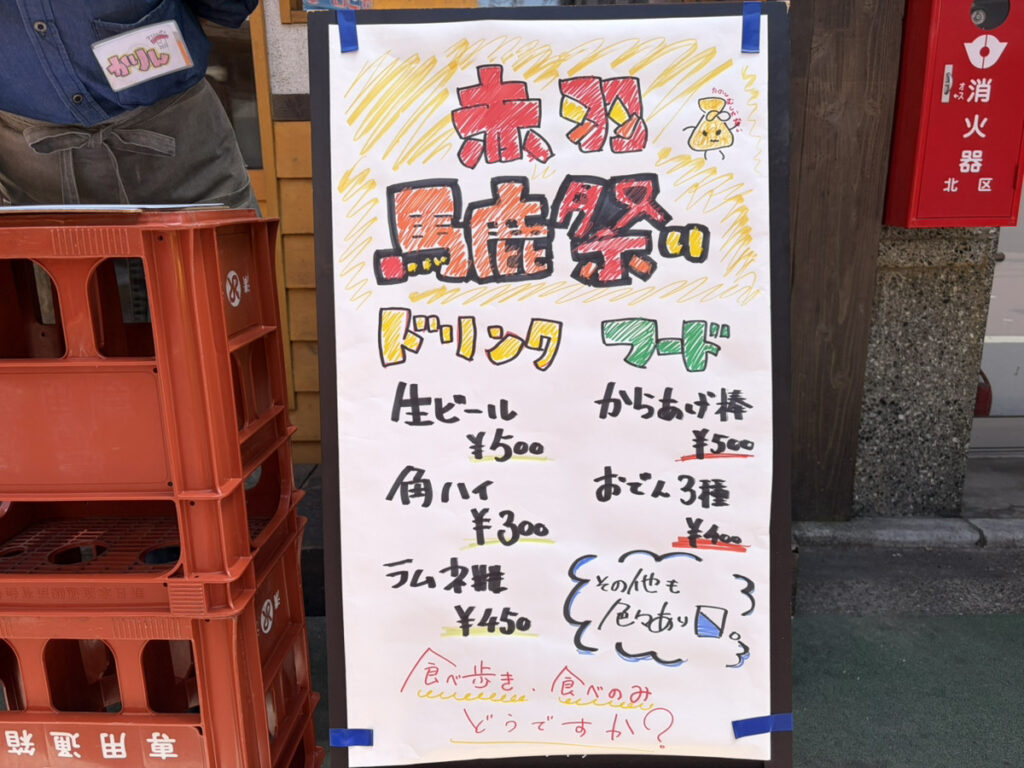 かりん
赤羽
馬鹿祭い
ドリンク
生ビール
¥500
角ハイ
¥300
ラムネ難
¥450
フード
からあげ棒
¥500
おでん3種
¥400
その他も
色々あり
食べ歩き、食べのみ
どうですか?
消火器
北区
専用通箱